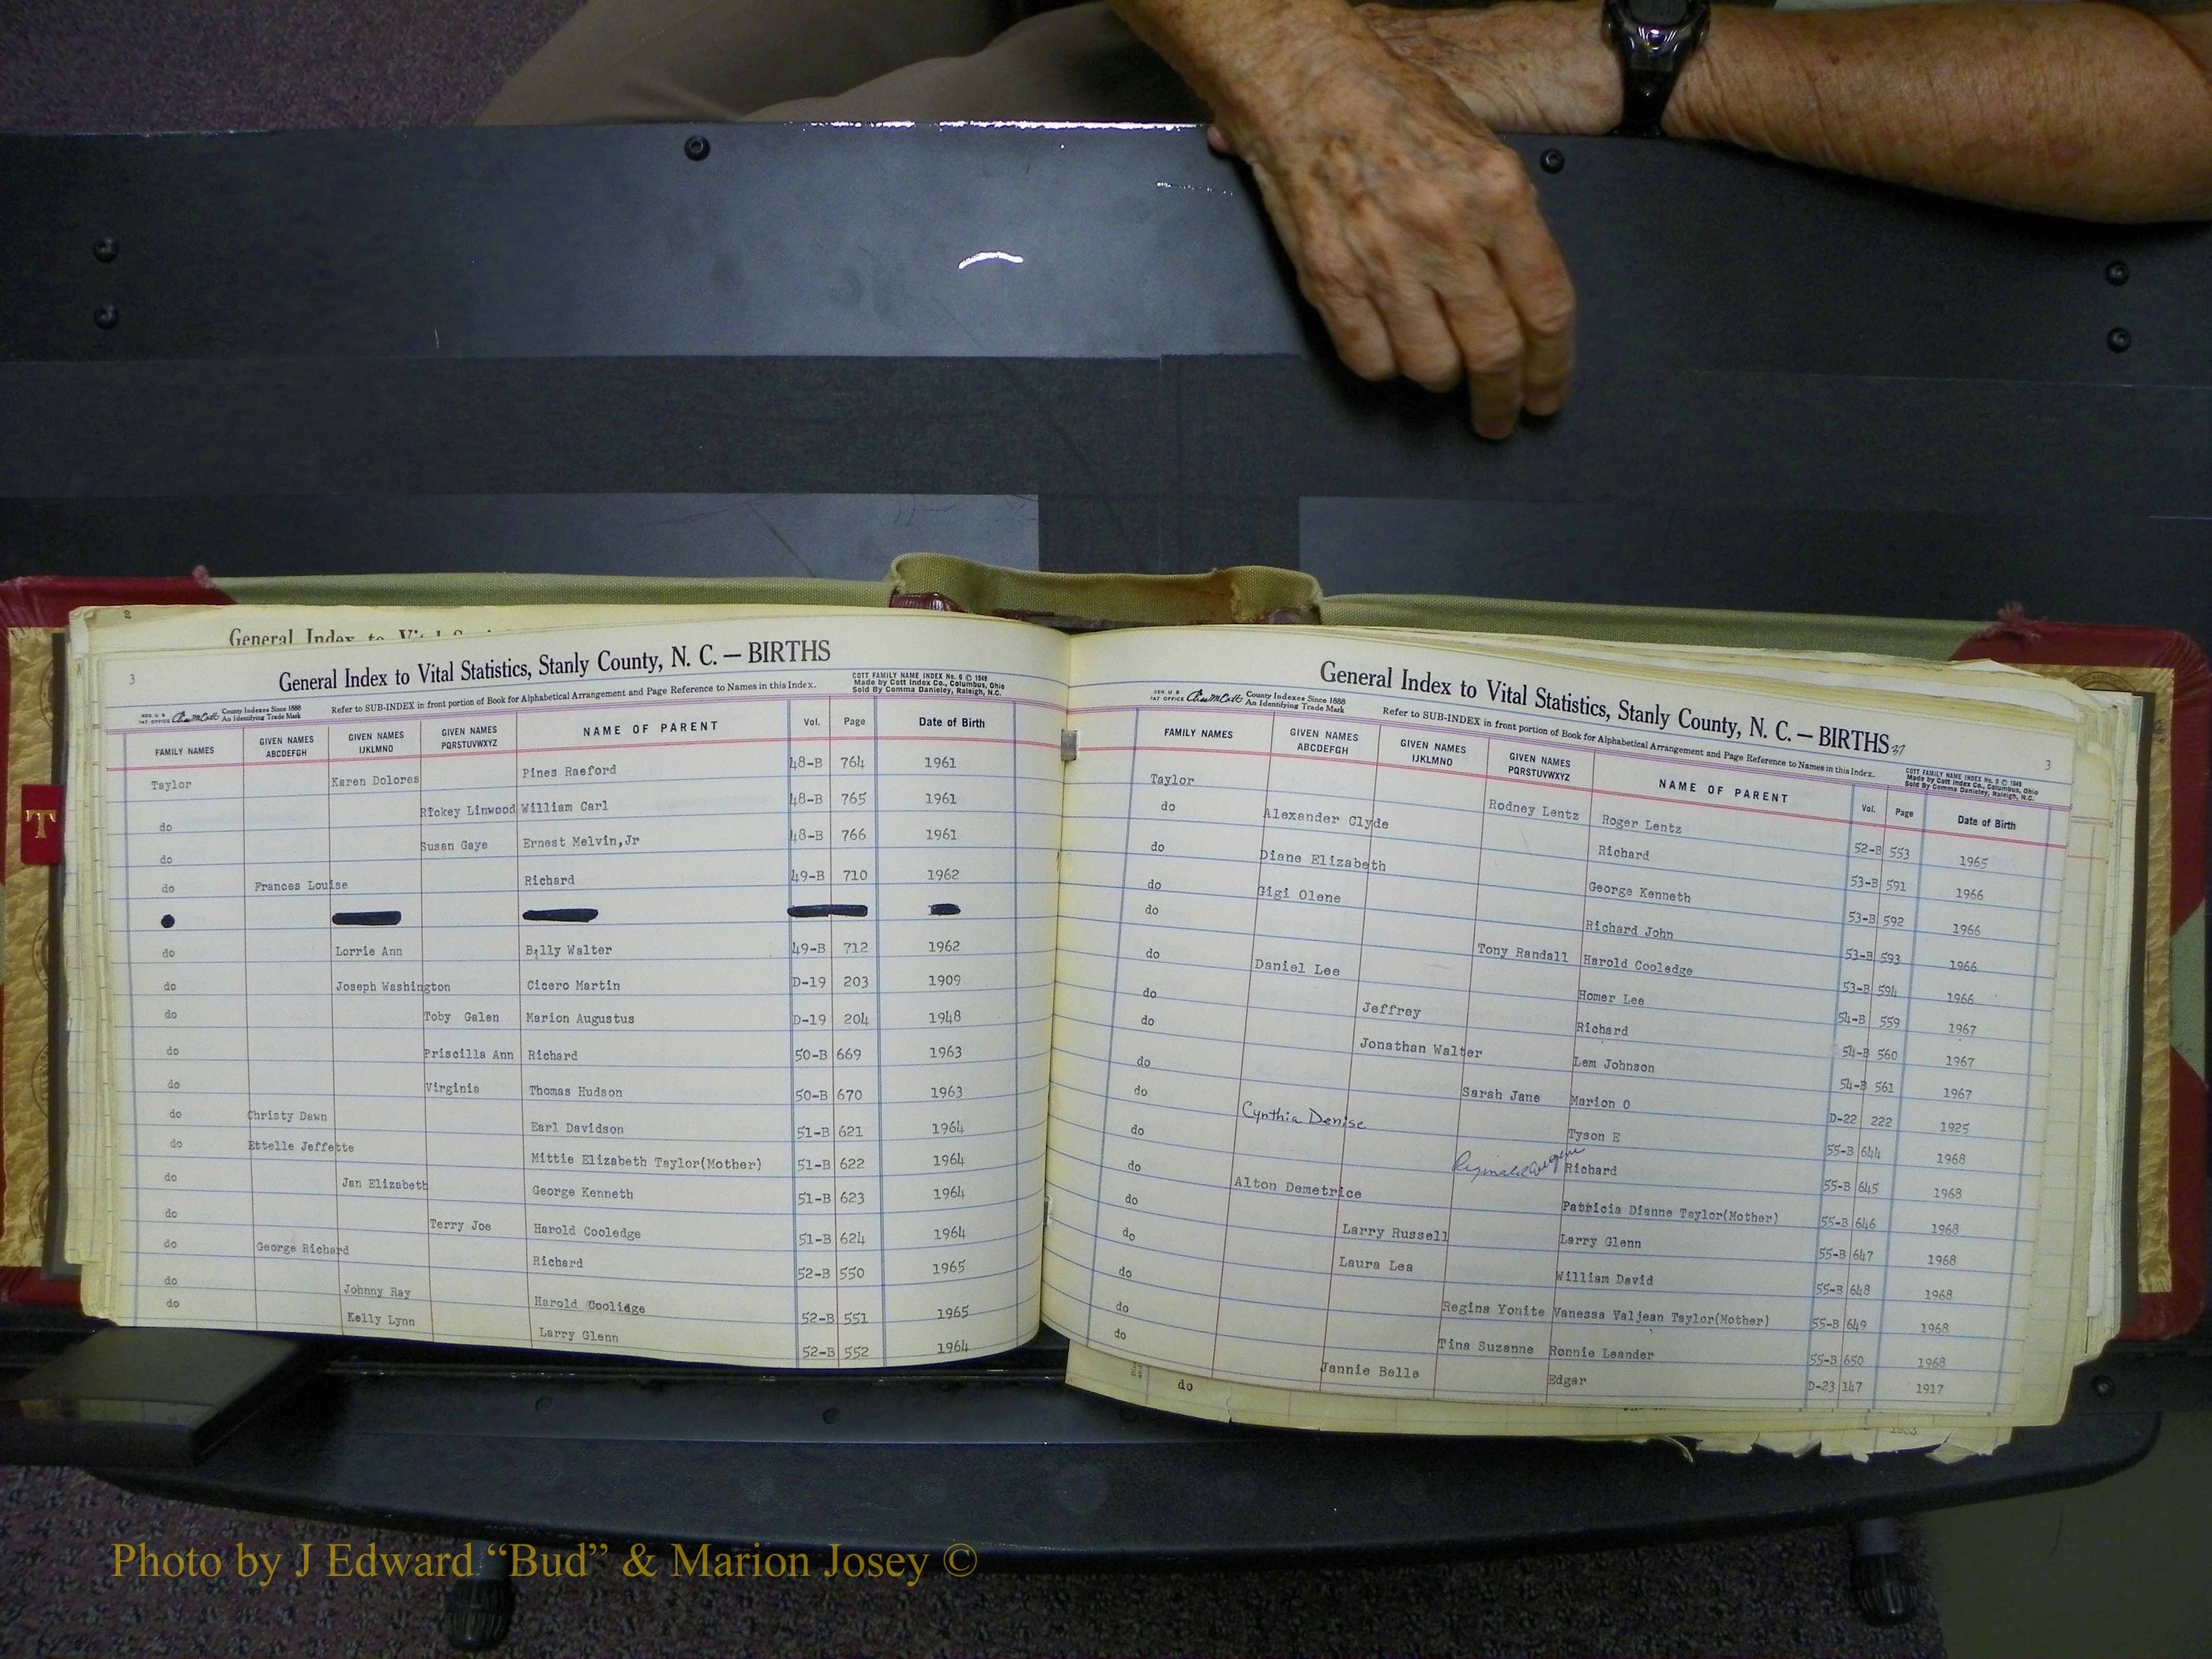 General Index to Vital Statistics, Stanly County, N. C. — BIRTHS
3
REG. U S PAT. OFFICE County Indexes Since 1888 An Identifying Trade Mark
Refer to SUB-INDEX in front portion of Book for Alphabetical Arrangement and Page Reference to Names in this Index.
COTT FAMILY NAME INDEX No. 6 © 1949
Made by Cott Index Co., Columbus, Ohio
Sold By Comma Danieley, Raleigh, N.C.
FAMILY NAMES GIVEN NAMES ABCDEFGH GIVEN NAMES IJKLMNO GIVEN NAMES PQRSTUVWXYZ NAME OF PARENT Vol. Page Date of Birth
Taylor Karen Dolores Pines Raeford 48-B 764 1961
do Rickey Linwood William Carl 48-B 765 1961
do Susan Gaye Ernest Melvin,Jr 48-B 766 1961
do Frances Louise Richard 49-B 710 1962
do Lorrie Ann Billy Walter 49-B 712 1962
do Joseph Washington Cicero Martin D-19 203 1909
do Toby Galen Marion Augustus D-19 204 1948
do Priscilla Ann Richard 50-B 669 1963
do Virginia Thomas Hudson 50-B 670 1963
do Christy Dawn Earl Davidson 51-B 621 1964
do Ettelle Jeffette Mittie Elizabeth Taylor(Mother) 51-B 622 1964
do Jan Elizabeth George Kenneth 51-B 623 1964
do Terry Joe Harold Cooledge 51-B 624 1964
do George Richard Richard 52-B 550 1965
do Johnny Ray Harold Coolidge 52-B 551 1965
do Kelly Lynn Larry Glenn 52-B 552 1964
T
General Index to Vital Statistics, Stanly County, N. C. — BIRTHS 37
3
REG. U S PAT. OFFICE County Indexes Since 1888 An Identifying Trade Mark
Refer to SUB-INDEX in front portion of Book for Alphabetical Arrangement and Page Reference to Names in this Index.
COTT FAMILY NAME INDEX No. 6 © 1949
Made by Cott Index Co., Columbus, Ohio
Sold By Comma Danieley, Raleigh, N.C.
FAMILY NAMES GIVEN NAMES ABCDEFGH GIVEN NAMES IJKLMNO GIVEN NAMES PQRSTUVWXYZ NAME OF PARENT Vol. Page Date of Birth
Taylor Rodney Lentz Roger Lentz 52-B 553 1965
do Alexander Clyde Richard 53-B 591 1966
do Diane Elizabeth George Kenneth 53-B 592 1966
do Gigi Olene Richard John 53-B 593 1966
do Tony Randall Harold Cooledge 53-B 594 1966
do Daniel Lee Homer Lee 54-B 559 1967
do Jeffrey Richard 54-B 560 1967
do Jonathan Walter Lem Johnson 54-B 561 1967
do Sarah Jane Marion O D-22 222 1925
do Cynthia Denise Tyson E 55-B 644 1968
do Reginald Richard 55-B 645 1968
do Alton Demetrice Patricia Dianne Taylor(Mother) 55-B 646 1968
do Larry Russell Larry Glenn 55-B 647 1968
do Laura Lea William David 55-B 648 1968
do Regina Yonite Vanessa Valjean Taylor(Mother) 55-B 649 1968
do Tina Suzanne Ronnie Leander 55-B 650 1968
do Jannie Belle Edgar D-23 147 1917
do
Photo by J Edward “Bud” & Marion Josey ©